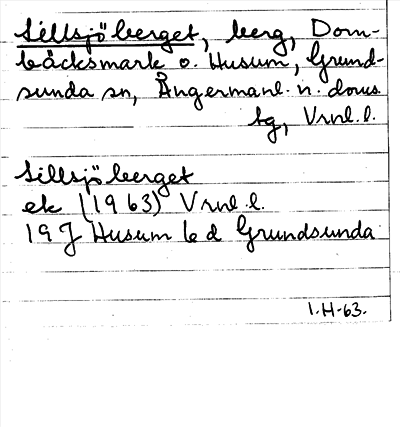 Sillsjöberget, berg, Dom-
bäcksmark o. Husum, Grund-
sunda sn, Ångermanl. n. doms
sg, Vrnl. l.
Sillsjöberget
ek (1963) Vrnl. l.
19J Husum b d Grundsunda
I.H-63.